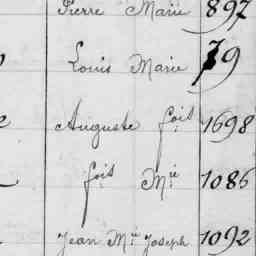 Pierre Marie 897
Louis Marie 79
Auguste fois 1698
fois Mie 1086
Jean Mie Joseph 1092